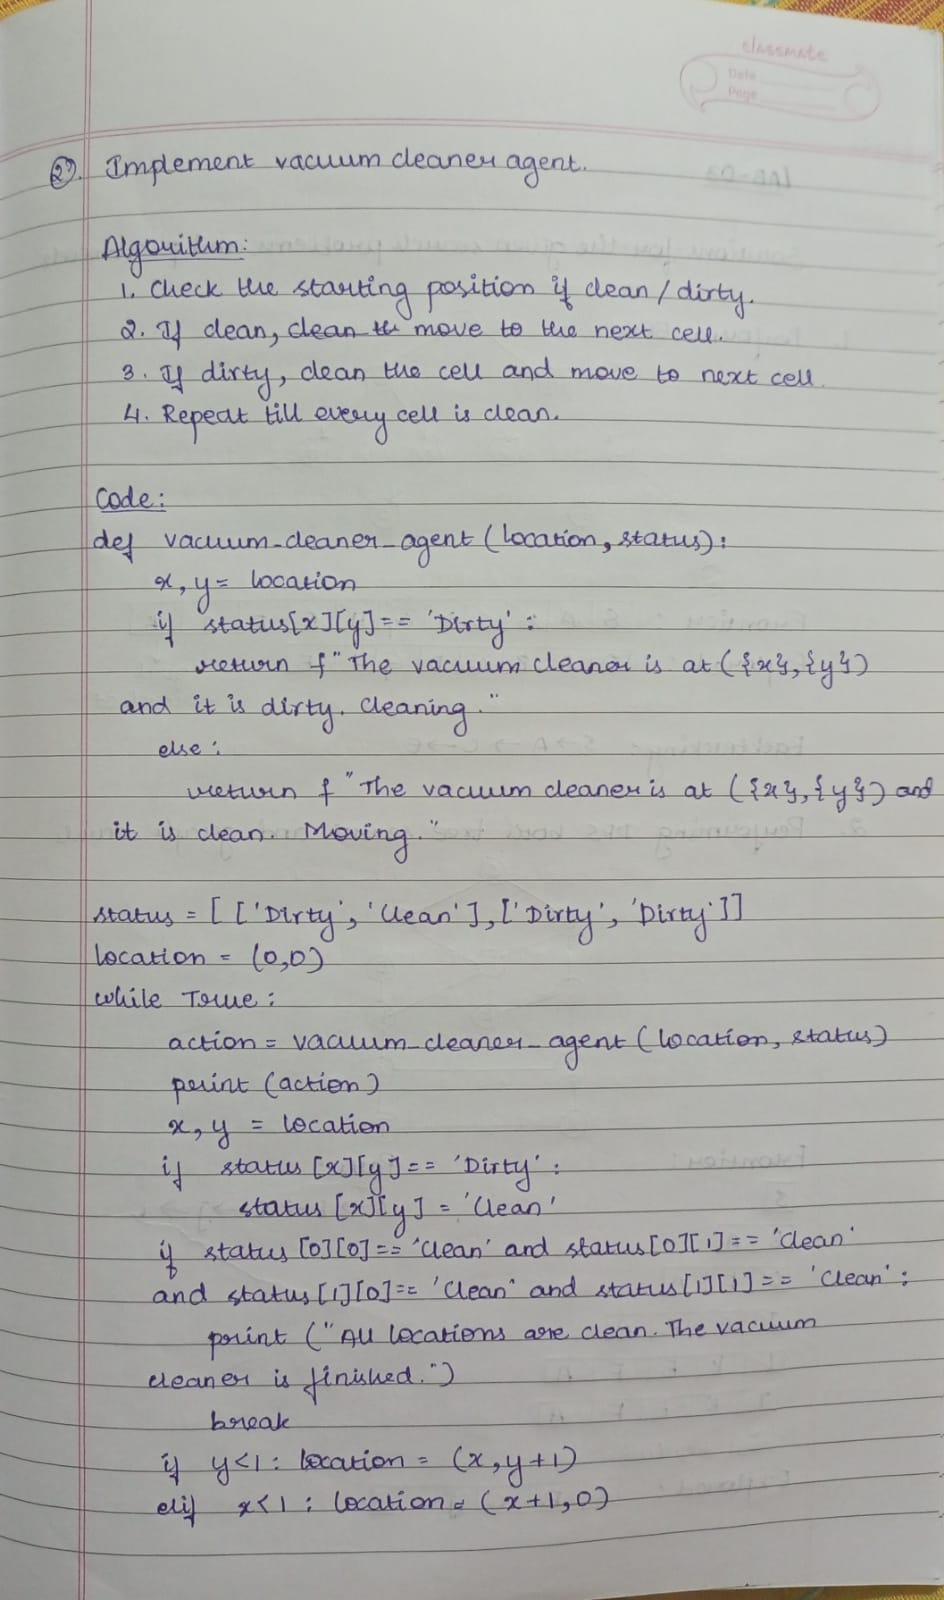 classmate
Date
Page
2). Implement vacuum cleaner agent.
Algorithm:
1. Check the starting position if clean/dirty.
2. If clean, clean th move to the next cell.
3. If dirty, clean the cell and move to next cell.
4. Repeat till every cell is clean.
Code:
def vacuum_cleaner_agent(location, status):
x, y = location
if status[x][y] == 'Dirty':
return f"The vacuum cleaner is at ({x},{y})
and it is dirty. Cleaning."
else:
return f"The vacuum cleaner is at ({x},{y}) and
it is clean. Moving."
status = [['Dirty', 'Clean'], ['Dirty', 'Dirty']]
location = (0,0)
while True:
action = vacuum_cleaner_agent(location, status)
print(action)
x, y = location
if status[x][y] == 'Dirty':
status[x][y] = 'Clean'
if status[0][0] == 'Clean' and status[0][1] == 'Clean'
and status[1][0] == 'Clean' and status[1][1] == 'Clean':
print("All locations are clean. The vacuum
cleaner is finished.")
break
if y<1: location = (x, y+1)
elif x<1: location = (x+1, 0)